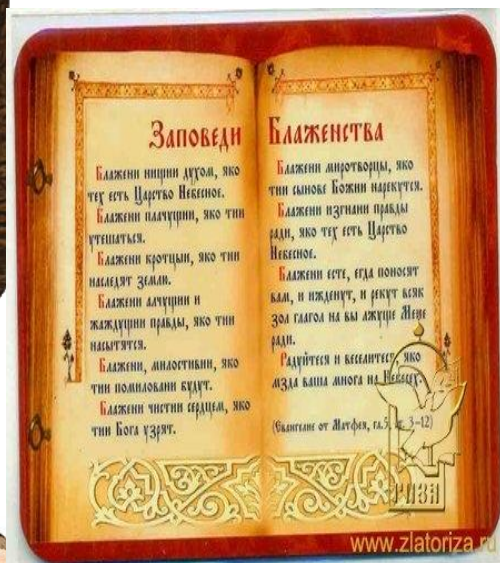 Заповеди
Блажени нищии духом, яко
тех есть Царство Небесное.
Блажени плачущии, яко тии
утешаться.
Блажени кротцыи, яко тии
наследят земли.
Блажени алчущии и
жаждущии правды, яко тии
насытятся.
Блажени, милостивии, яко
тии помиловани будут.
Блажени чистии сердцем, яко
тии Бога узрят.
Блаженства
Блажени миротворцы, яко
тии сынове Божии нарекутся.
Блажени изгнани правды
ради, яко тех есть Царство
Небесное.
Блажени есте, егда поносят
вам, и ижденут, и рекут всяк
зол глагол на вы лжуще Мене
ради.
Радуйтеся и веселитеся, яко
мзда ваша многа на Небесех.
(Евангелие от Матфея, гл.5, ст. 3–12)
РИЗА
www.zlatoriza.ru